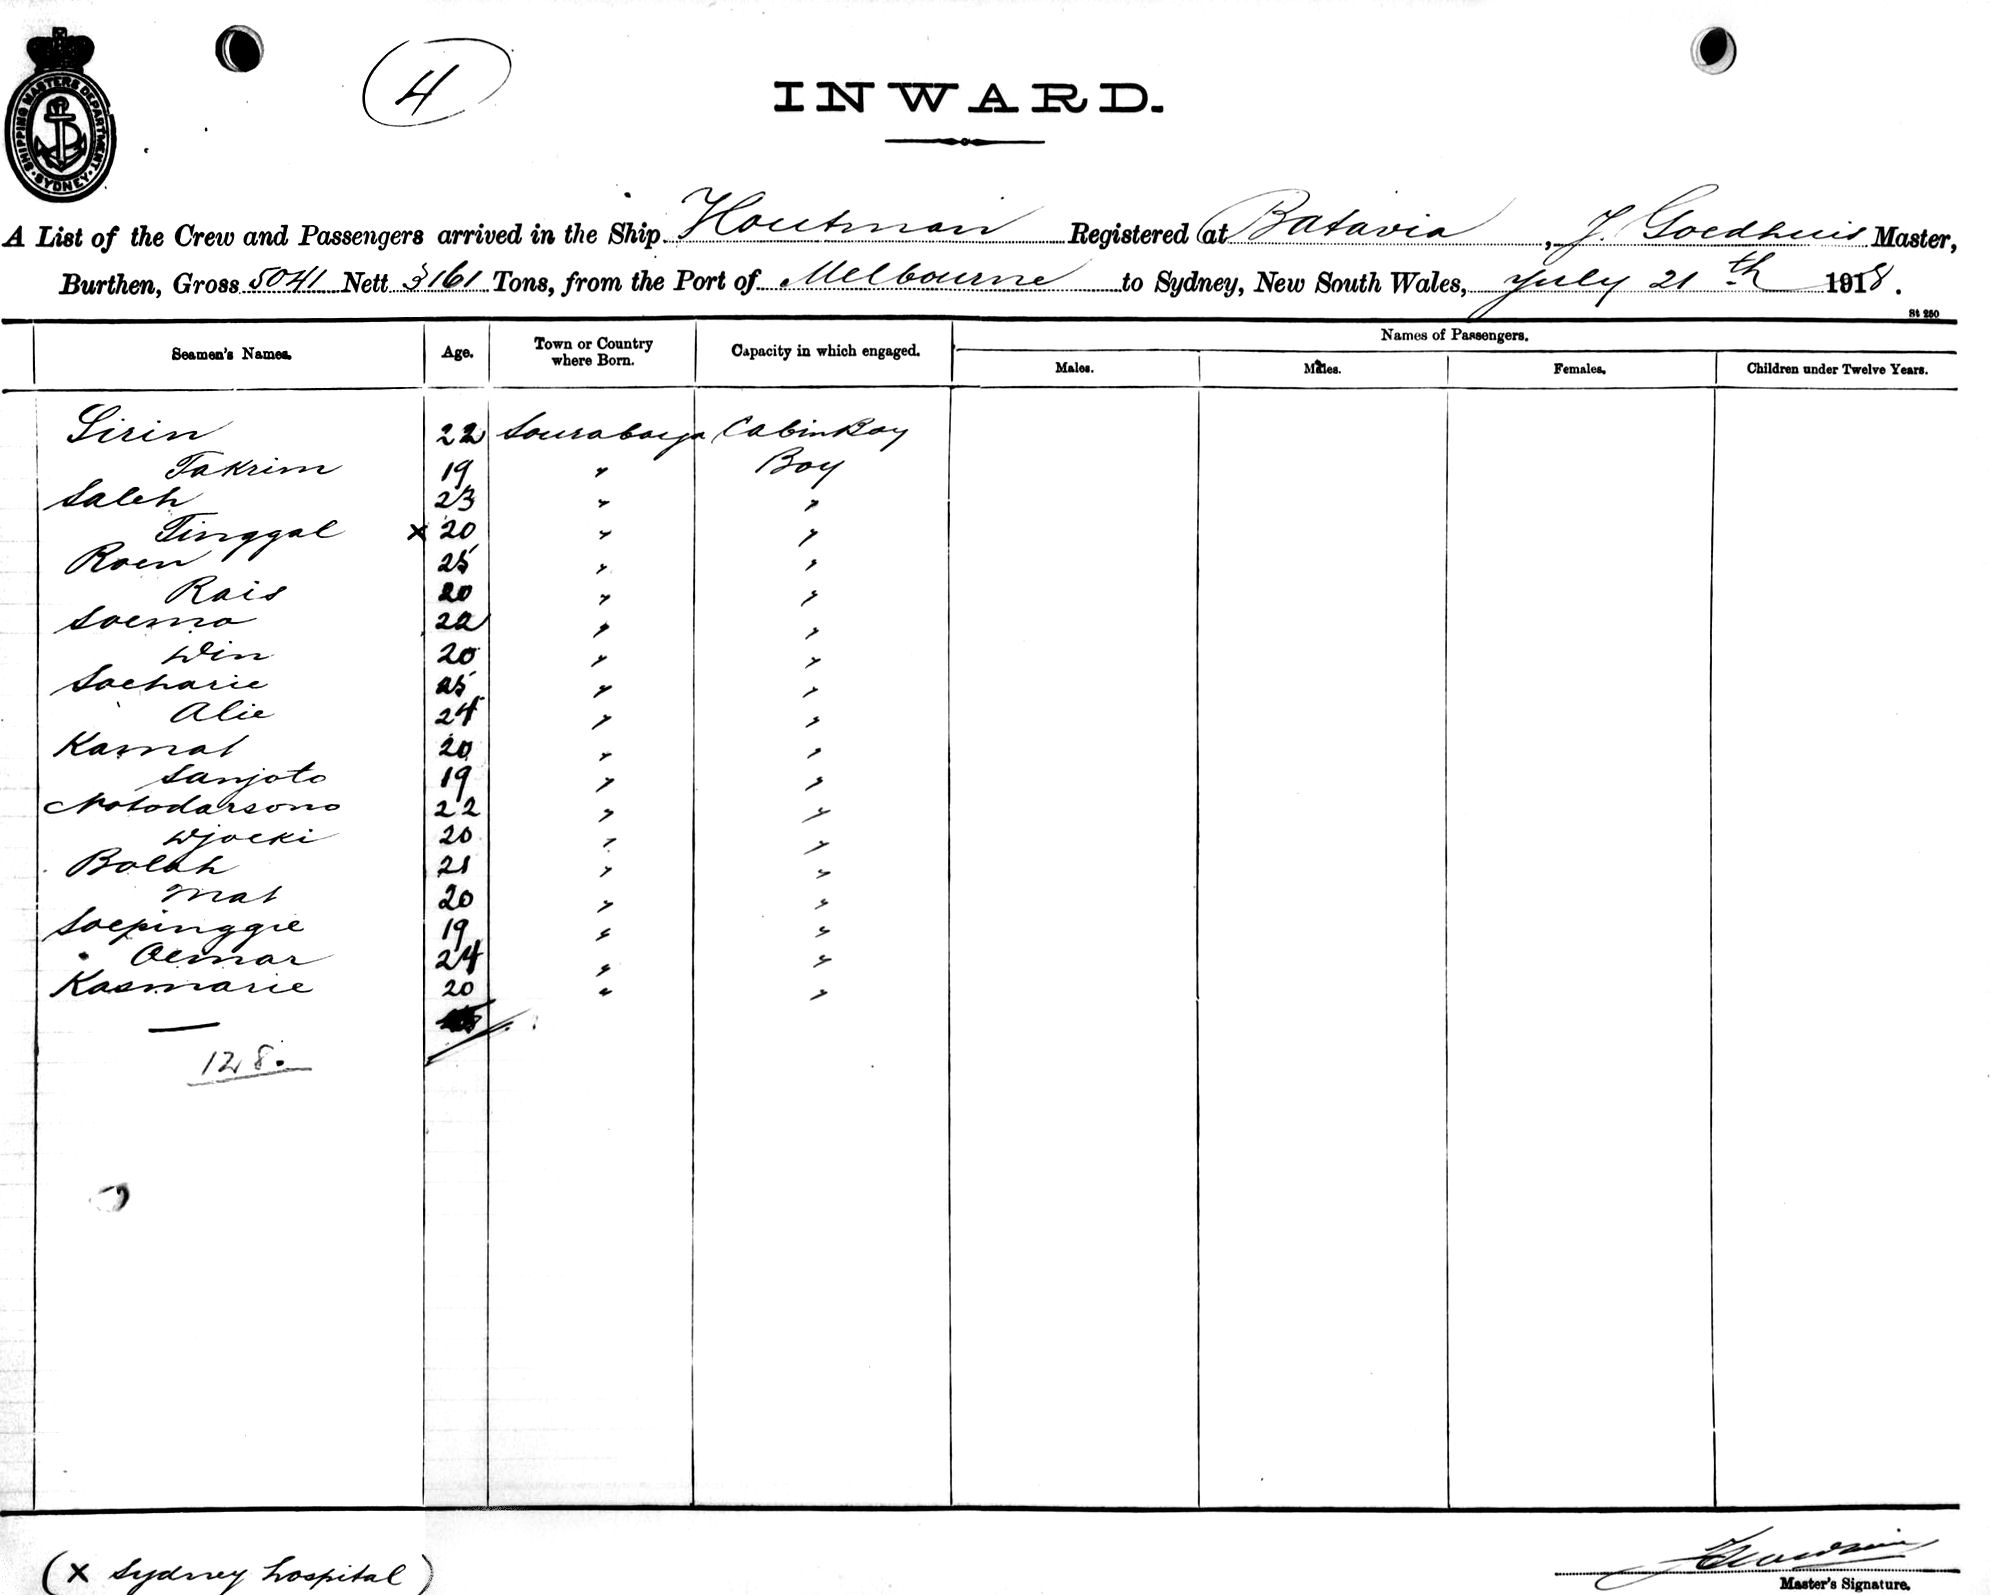 SHIPPING MASTERS DEPARTMENT · SYDNEY ·
4
INWARD.
A List of the Crew and Passengers arrived in the Ship Houtman Registered at Batavia, J. Goedhuis Master,
Burthen, Gross 5041 Nett 3161 Tons, from the Port of Melbourne to Sydney, New South Wales, July 21th 1918.
St 250
Seamen's Names. Age. Town or Country where Born. Capacity in which engaged. Names of Passengers.
Males. Males. Females. Children under Twelve Years.
Sirin 22 Sourabaya Cabin Boy
Takrim 19 " Boy
Saleh 23 " "
Tinggal x 20 " "
Roen 25 " "
Rais 20 " "
Soemo 22 " "
Win 20 " "
Soeharie 25 " "
Alie 24 " "
Kamat 20 " "
Sanjoto 19 " "
Notodarsono 22 " "
Djoeki 20 " "
Bolah 21 " "
Mat 20 " "
Soepinggie 19 " "
Oemar 24 " "
Kasmarie 20 " "
128.
(x Sydney hospital)
Master's Signature.